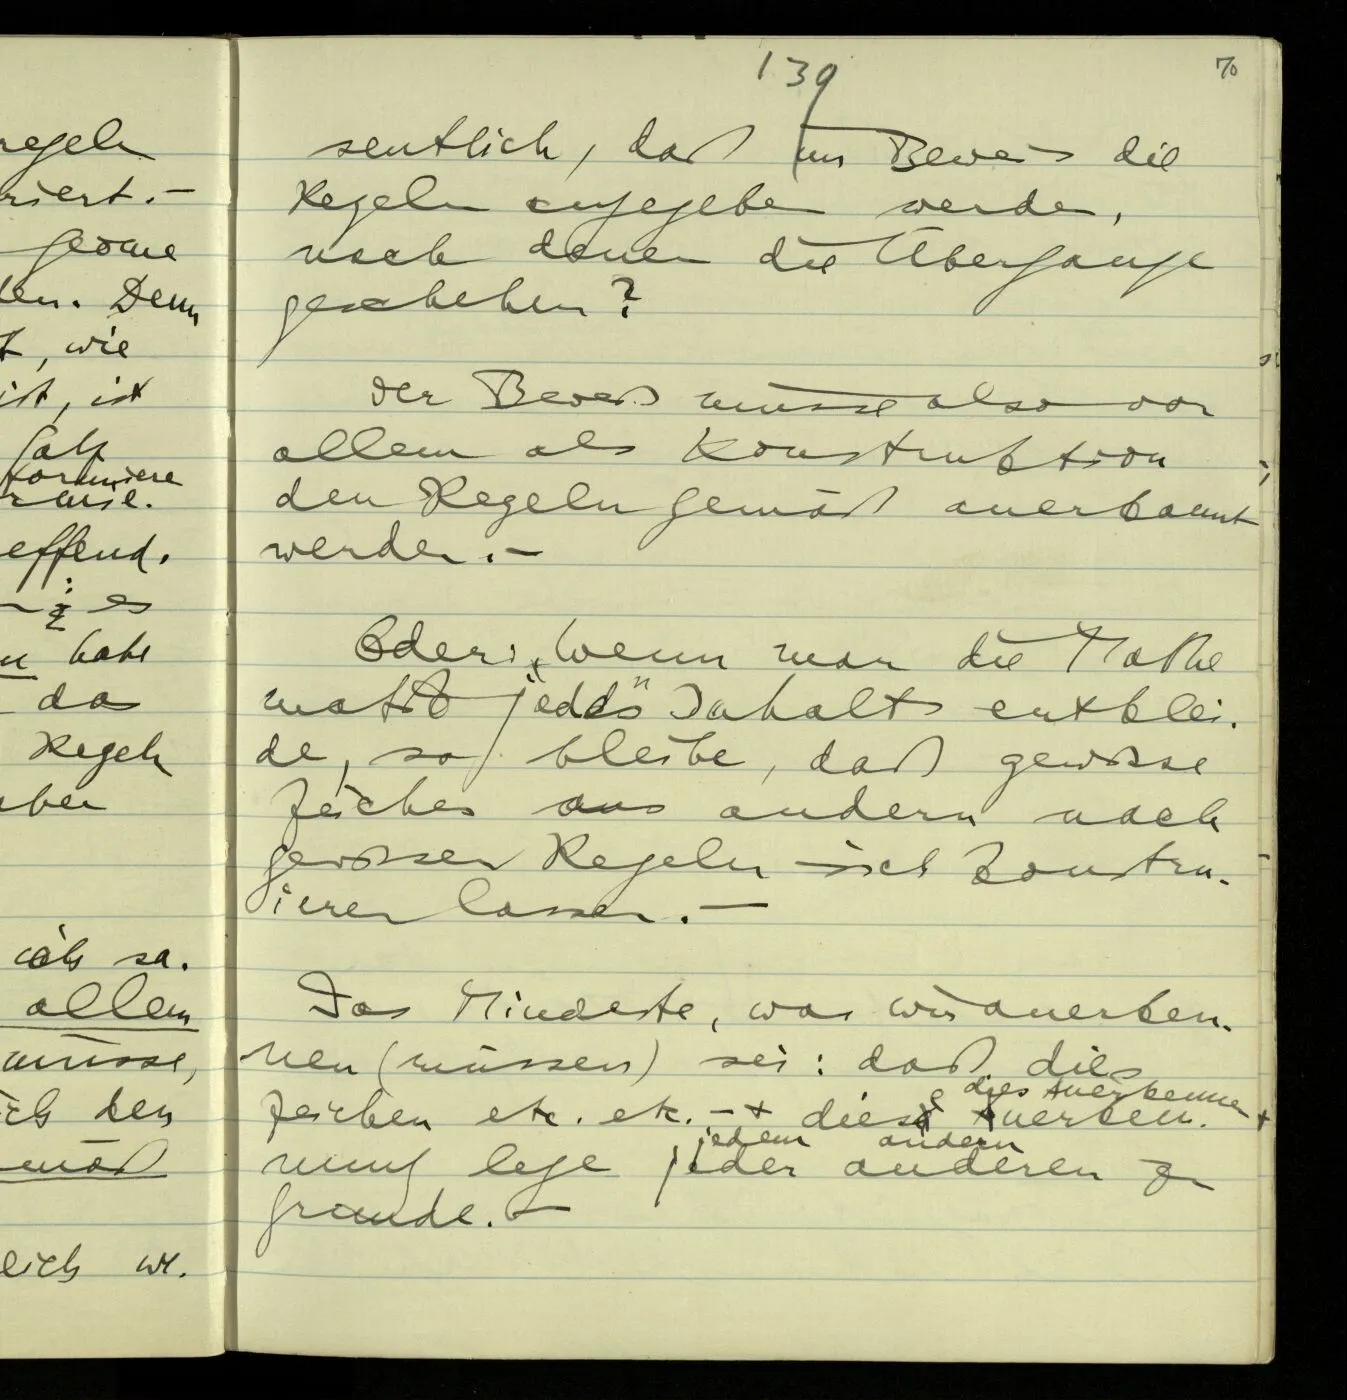 regeln
riert. –
geome
den. Denn
t, wie
ist, ist
falls
formiere
effend.
es
habe
das
Regeln
aber
ich sa.
allem
müsse,
ich den
mäß
lich we.
139
70
sentlich, daß im Beweis die
Regeln angegeben werden,
nach denen die Übergänge
geschehen?
Der Beweis müsse also vor
allem als Konstruktion
den Regeln gemäß anerkannt
werden. –
Oder: „Wenn man die Mathe
matik jedes" Inhalts entklei-
de, so bleibe, daß gewisse
Zeichen aus andern nach
gewissen Regeln sich konstru-
ieren lassen. –
Das Mindeste, was wir anerken-
nen (müssen) sei: daß dies
dies Anerkennen
Zeichen etc. etc. – + diese Anerken-
jedem andern
nung lege jeder anderen zu
grunde. –